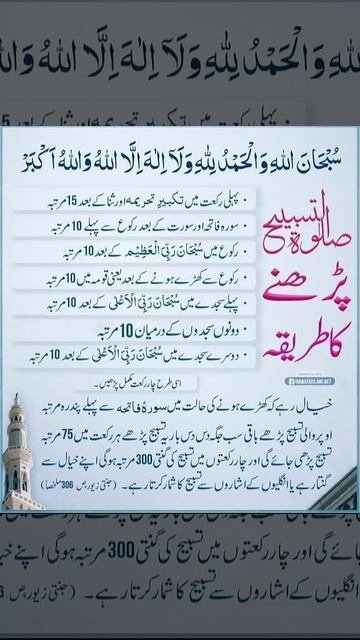 سُبْحَانَ اللهِ وَالْحَمْدُ لِلّٰهِ وَلَآ اِلٰهَ اِلَّا اللهُ وَاللهُ اَكْبَرْ
صلوٰۃ التسبیح
پڑھنے
کا طریقہ
• پہلی رکعت میں تکبیرِ تحریمہ اور ثنا کے بعد 15 مرتبہ
• سورہ فاتحہ اور سورت کے بعد رکوع سے پہلے 10 مرتبہ
• رکوع میں سُبْحَانَ رَبِّیَ الْعَظِیْم کے بعد 10 مرتبہ
• رکوع سے کھڑے ہونے کے بعد یعنی قومہ میں 10 مرتبہ
• پہلے سجدے میں سُبْحَانَ رَبِّیَ الْاَعْلٰی کے بعد 10 مرتبہ
• دونوں سجدوں کے درمیان 10 مرتبہ
• دوسرے سجدے میں سُبْحَانَ رَبِّیَ الْاَعْلٰی کے بعد 10 مرتبہ
اسی طرح چار رکعت مکمل پڑھیں۔
DAWATEISLAMI.NET
خیال رہے کہ کھڑے ہونے کی حالت میں سورۂ فاتحہ سے پہلے پندرہ مرتبہ
اوپر والی تسبیح پڑھے باقی سب جگہ دس دس بار یہ تسبیح پڑھے ہر رکعت میں 75 مرتبہ
تسبیح پڑھی جائے گی اور چار رکعتوں میں تسبیح کی گنتی 300 مرتبہ ہوگی اپنے خیال سے
گنتا رہے یا انگلیوں کے اشاروں سے تسبیح کا شمار کرتا رہے۔ (جنتی زیور، ص 306 ملخصا)